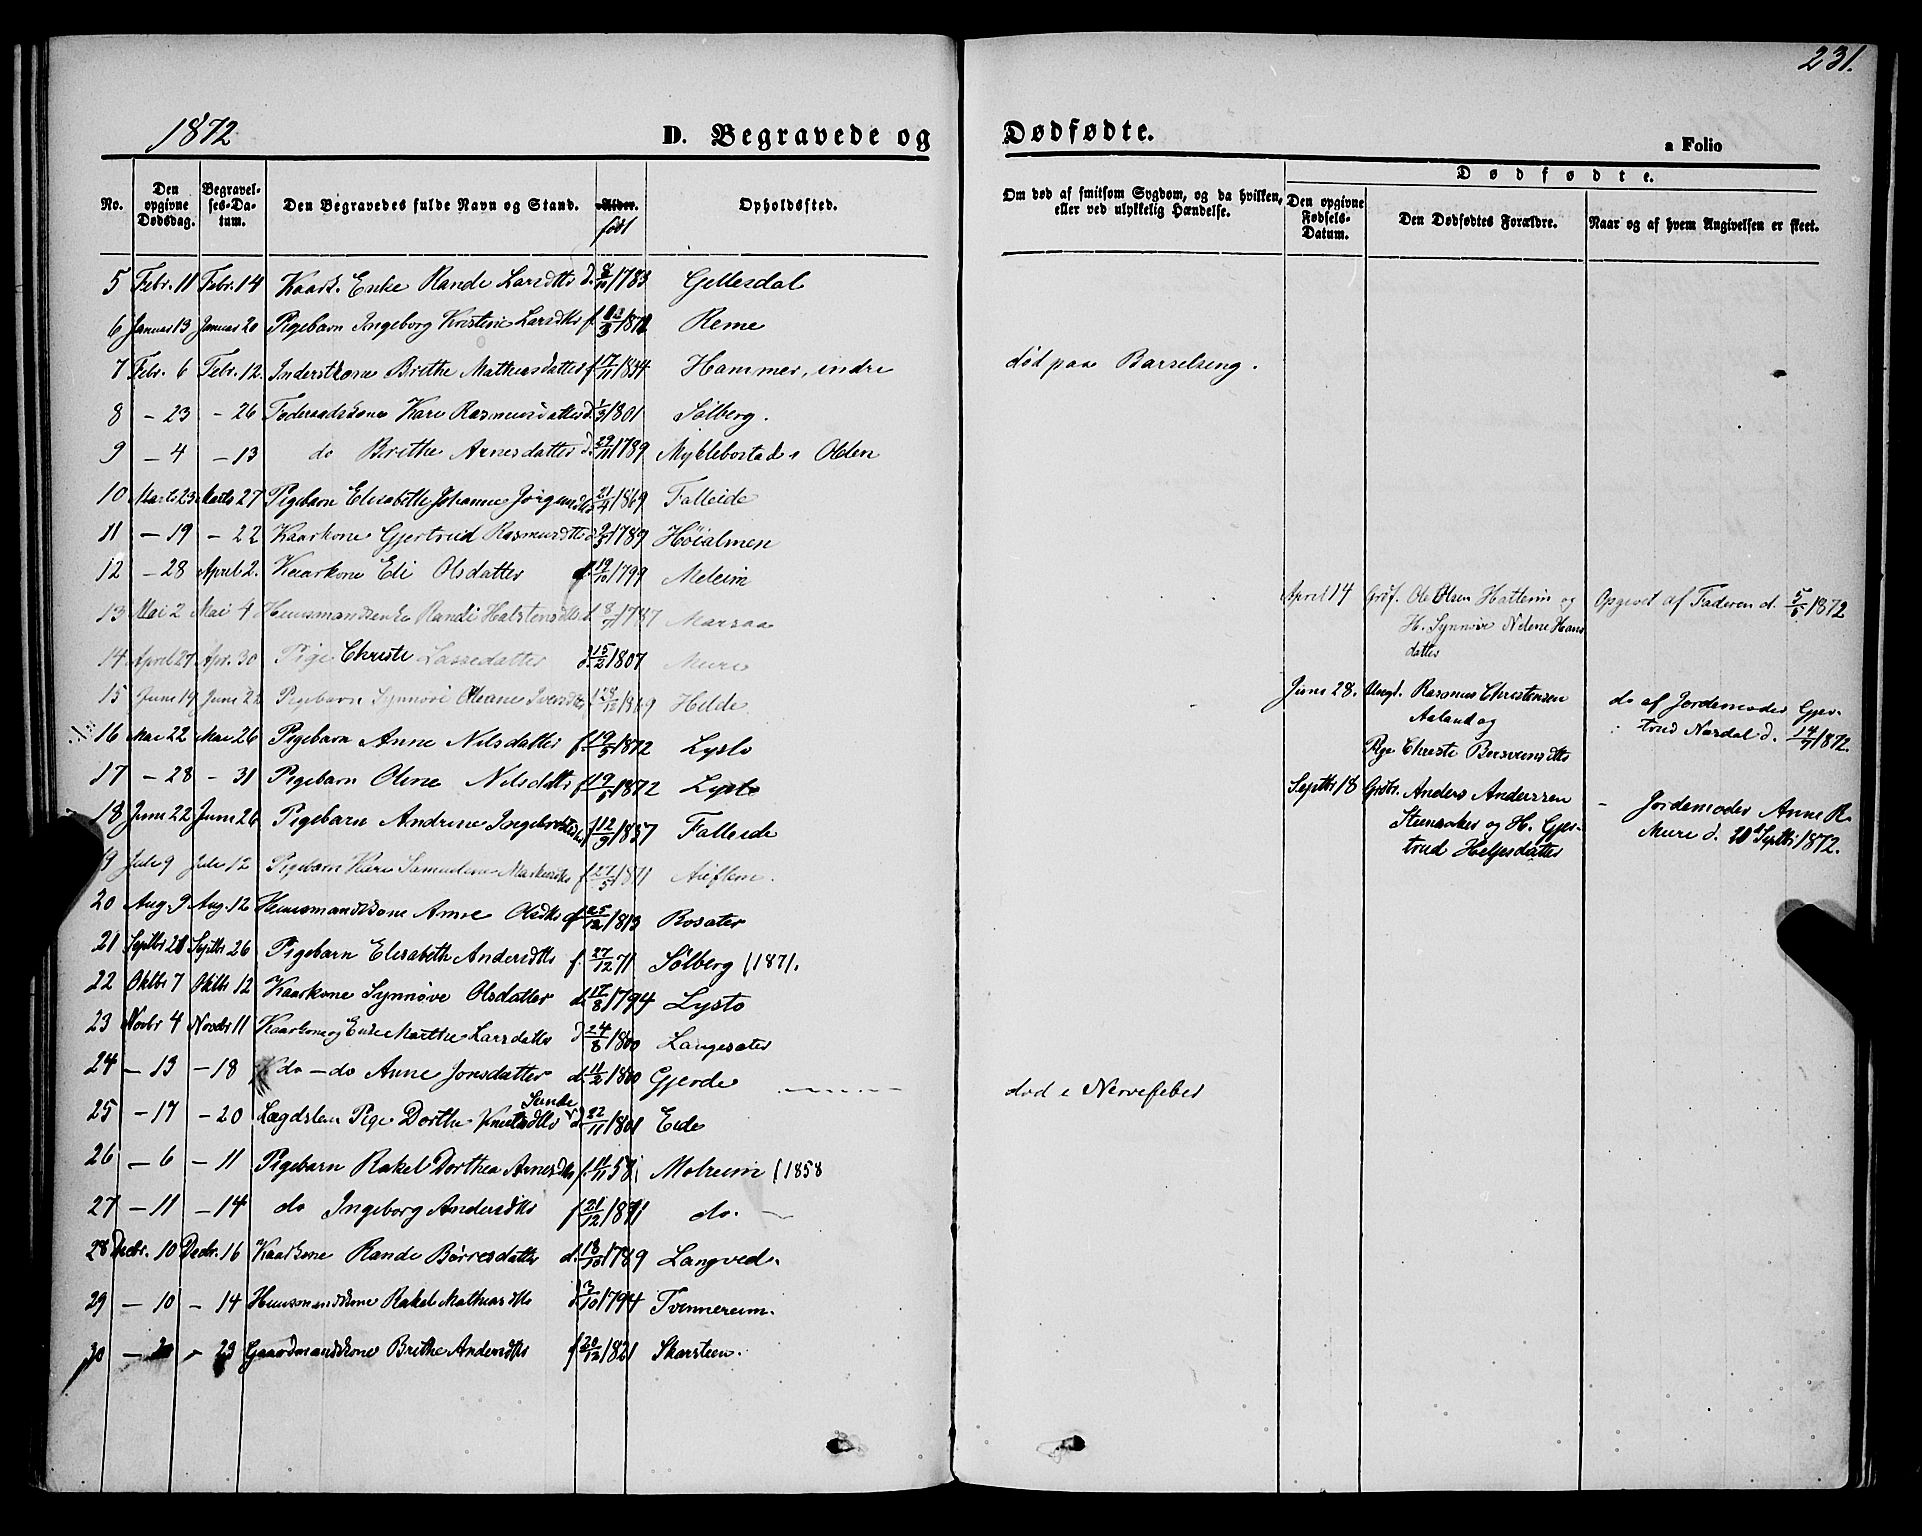 231.
1872
D. Begravede og Dødfødte.
a Folio
No.
Den opgivne Dødsdag.
Begravel-ses-Da-tum.
Den Begravedes fulde Navn og Stand.
Alder.
født
Opholdssted.
Om død af smitsom Sygdom, og da hvilken, eller ved ulykkelig Hændelse.
Dødfødte.
Den opgivne Fødsels-Datum.
Den Dødfødtes Forældre.
Naar og af hvem Angivelsen er skeet.
5 Febr. 11 Febr. 14 Kaark. Enke Rande Larsdtts d. 1783 Gellesdal
6 Januar 13 Januar 20 Pigebarn Ingeborg Kristine Larsdtts f. Reme
7 Febr. 6 Febr. 12. Inderstkone Brithe Mathiasdatter f 17/11 1834 Hammer, indre død paa Barselseng.
8 - 23 - 26 Føderaadskone Kari Rasmusdatter d. 1/3 1801 Sølberg.
9 - 4 - 13 do Brithe Arnesdatter d. 29/11 1789 Myklebostad i Olden
10 Marts 23 Marts 27 Pigebarn Elisabeth Johanne Jørgensdtts 21/4 1869 Falleide
11 - 19 - 22 Kaarkone Gjertrud Rasmusdtts 1789 Høialmen
12 - 28 April 2. Kaarkone Eli Olsdatter 19/10 1799 Meleim
13 Mai 2 Mai 4 Huusmandsenke Randi Halstensdtts d. 8/7 1787 Marsaa
14 April 27 Apr. 30 Pige Christi Lassedatter d. 15/2 1807 Mure
15 Juni 19 Juni 22 Pigebarn Synnøve Oleane Iversdtts 28/12 1869 Hilde
16 Mai 22 Mai 26 Pigebarn Anne Nilsdatter f. 19/5 1872 Lyslo
17 - 28 - 31 Pigebarn Oline Nilsdatts f. 19/5 1872 Lyslo
18 Juni 22 Juni 26 Pigebarn Andrine Ingebretsdtts f. 12/9 1857 Falleide
19 Juli 9 Juli 12 Pigebarn Kari Samueline Markusdtts f. 27/5 1871 Aaflem.
20 Aug. 9 Aug. 12 Huusmandskone Anne Olsdtts 25/12 1813 Rosæter
21 Septbr 21 Septbr 26 Pigebarn Elisabeth Andersdtts f. 27/12 71 Sølberg (1871.
22 Oktbr 7 Oktbr 12 Kaarkone Synnøve Olsdatter d. 17/8 1794 Lyslo
23 Novbr 4 Novbr 11 Kaarkone og Enke Marthe Larsdatts d 24/8 1800 Langesæter
24 - 13 - 18 do - do Anne Jonsdatter d. 11/2 1800 Gjerde død i Nervefeber
25 - 17 - 20 Lægdslem Pige Dorthe Knutsdtts Sunde d 22/11 1801 Eide
26 - 6 - 11 Pigebarn Rakel Dorthea Arnesdtts f. 11/11 58 Molreim (1858
27 - 11 - 14 do Ingeborg Andersdtts f 21/12 1871 do.
28 Decbr. 10 Decbr. 16 Kaarkone Rande Børresdatts d. 18/10 1789 Langved.
29 - 10 - 14 Huusmandskone Rakel Mathiasdtts d 3/10 1794 Tvinnereim.
30 - 20 - 23 Gaardmandskone Brithe Andersdtts f 20/12 1821 Skarsteen.
April 14 Grdf. Ole Olsen Hattevin og
H. Synnøve Nelene Hans
datter
Opgivet af Faderen d. 5/5 1872
Juni 28. Ungk. Rasmus Christensen
Aaland og
Pige Christi Børsvensdtts
do af Jordemoder Gjer-
trud Nordal d. 14/7 1872.
Septbr 18 Grdbr. Anders Anderssen
Steensaker og H. Gjer-
trud Helgesdatter
- Jordemoder Anne R.
Mure d. 20d Septbr 1872.